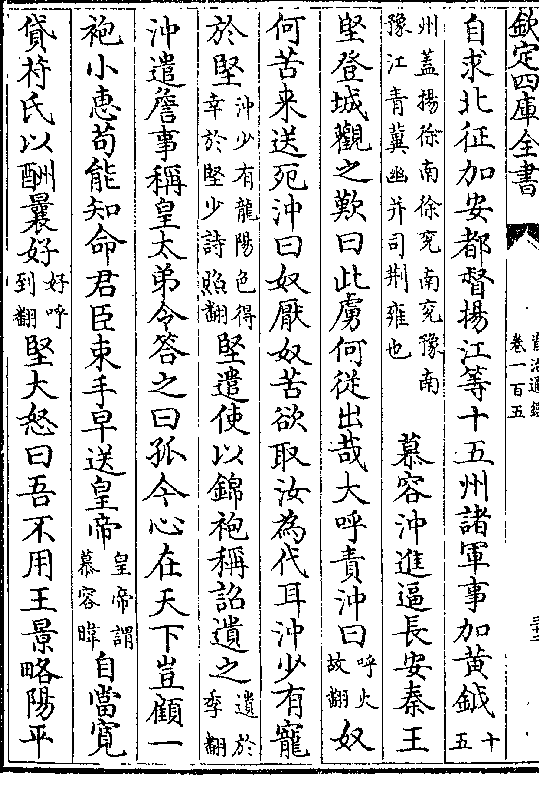 欽定四庫全書
資治通鑑
卷一百五
自求北征加安都督揚江等十五州諸軍事加黄鉞十五
州葢揚徐南徐兖南兖豫南豫江青冀幽并司荆雍也 慕容沖進逼長安秦王
堅登城觀之歎曰此虜何從出哉大呼責沖曰呼火故翻奴
何苦来送死沖曰奴厭奴苦欲取汝為代耳沖少有寵
於堅沖少有龍陽色得幸於堅少詩照翻堅遣使以錦袍稱詔遺之遺於季翻
沖遣詹事稱皇太弟令答之曰孤今心在天下豈顧一
袍小惠苟能知命君臣束手早送皇帝皇帝謂慕容暐自當寛
貸苻氏以酬曩好好呼到翻堅大怒曰吾不用王景略陽平